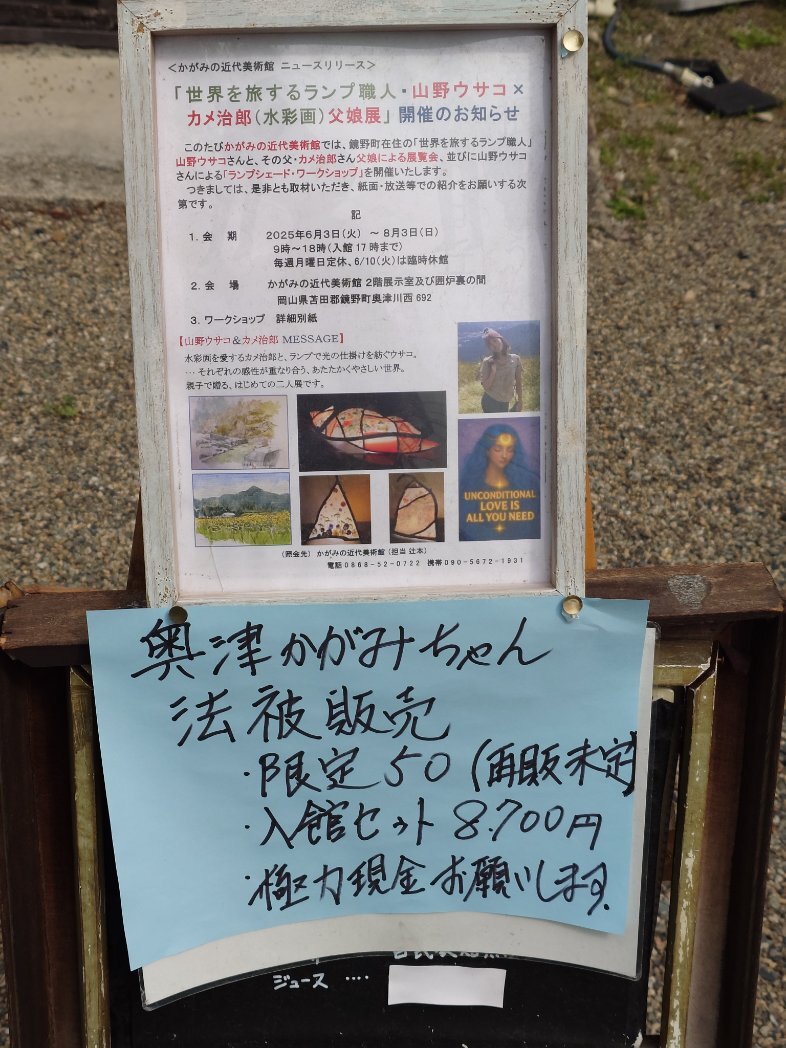 ＜かがみの近代美術館 ニュースリリース＞
「世界を旅するランプ職人・山野ウサコ×
カメ治郎（水彩画）父娘展」開催のお知らせ
このたびかがみの近代美術館では、鏡野町在住の「世界を旅するランプ職人」
山野ウサコさんと、その父・カメ治郎さん父娘による展覧会、並びに山野ウサコ
さんによる「ランプシェード・ワークショップ」を開催いたします。
つきましては、是非とも取材いただき、紙面・放送等での紹介をお願いする次
第です。
記
1. 会 期 2025年6月3日（火） ～ 8月3日（日）
9時～18時（入館 17 時まで）
毎週月曜日定休、6/10（火）は臨時休館
2. 会 場 かがみの近代美術館 2階展示室及び囲炉裏の間
岡山県苫田郡鏡野町奥津川西 692
3. ワークショップ 詳細別紙
【山野ウサコ＆カメ治郎 MESSAGE】
水彩画を愛するカメ治郎と、ランプで光の仕掛けを紡ぐウサコ。
… それぞれの感性が重なり合う、あたたかくやさしい世界。
親子で贈る、はじめての二人展です。
UNCONDITIONAL
LOVE IS
ALL YOU NEED
（照会先） かがみの近代美術館（担当 辻本）
電話0868-52-0722 携帯090-5672-1931
奥津かがみちゃん
法被販売
・限定50（再販未定）
・入館セット 8.700円
・極力現金お願いします。
ジュース ････